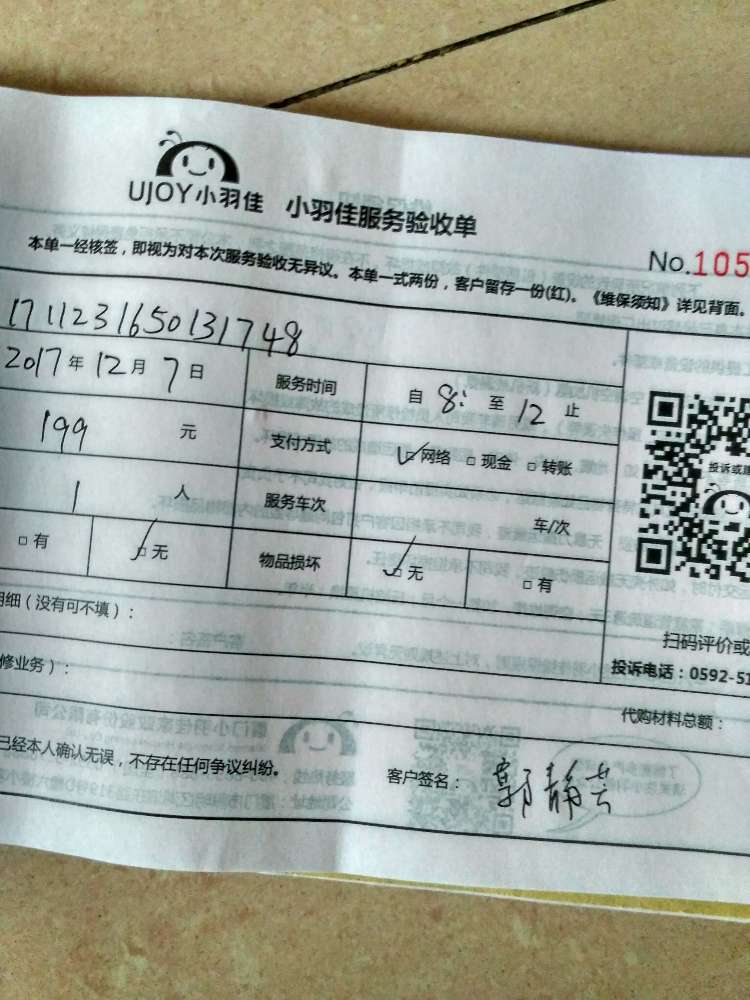 UJOY小羽佳 小羽佳服务验收单
No.105
本单一经核签，即视为对本次服务验收无异议。本单一式两份，客户留存一份(红)。《维保须知》详见背面。
1711231650131748
2017年12月7日 服务时间 自8:至12止
199元 支付方式 网络 现金 转账
1人 服务车次 车/次
有 无 物品损坏 无 有
投诉或建
扫码评价或
投诉电话：0592-51
明细（没有可不填）：
修业务）：
代购材料总额：
已经本人确认无误，不存在任何争议纠纷。
客户签名：郭静芸